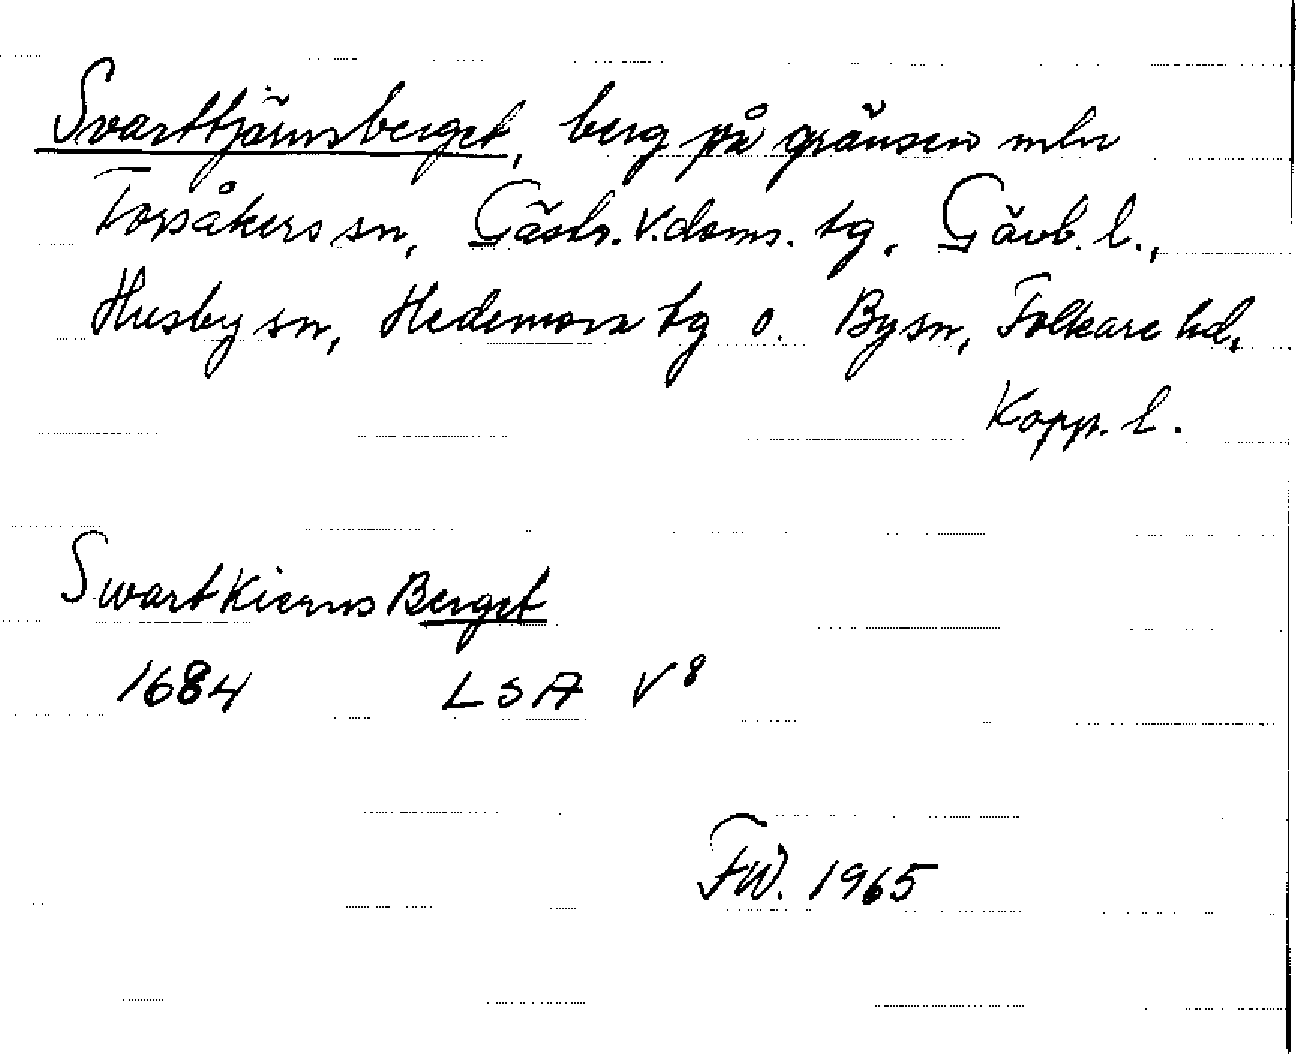 Svarttjärnsberget, berg på gränsen mln
Torsåkers sn, Gästr. V. doms. tg, Gävb. l.,
Husby sn, Hedemora tg o. By sn, Folkare hd,
Kopp. l.
Swart Kierns Berget
1684 LSA V8
FW. 1965